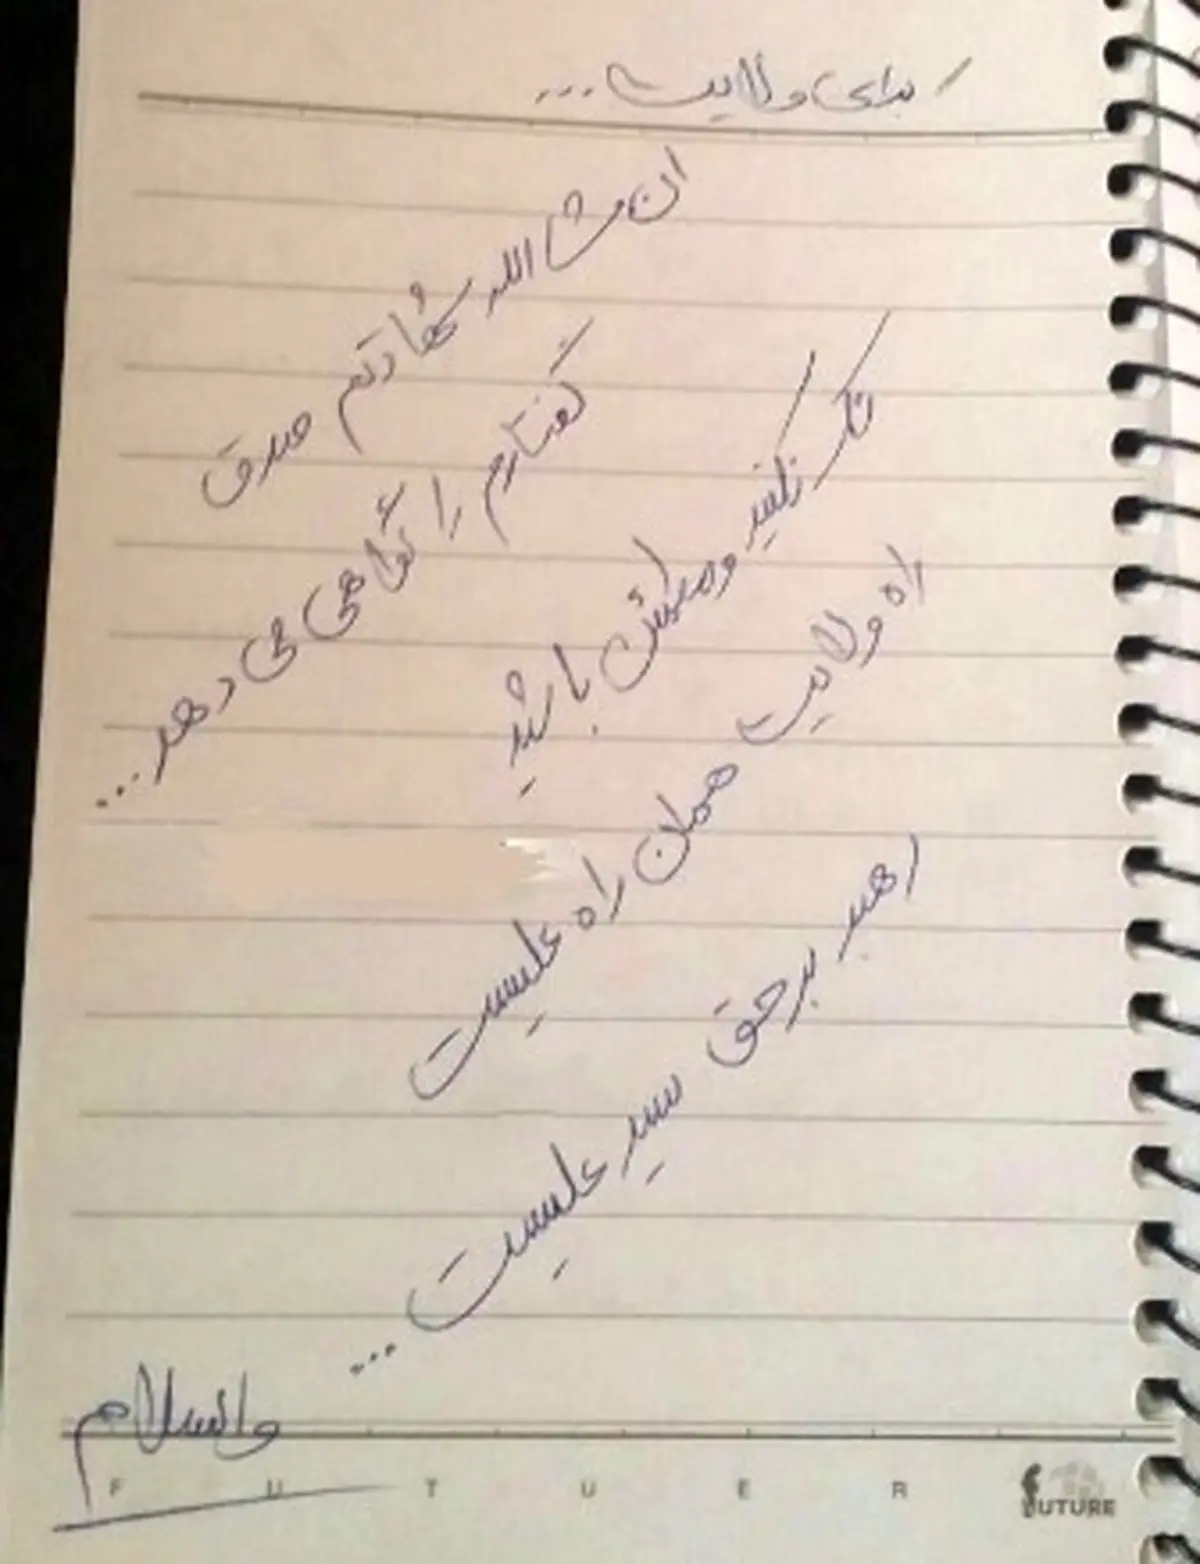 برای ولایت...
ان شاالله شهادتم صدق
گفتارم را گواهی می دهد...
باشید
راه ولایت همان راه علیست
رهبر برحق سید علیست...
والسلام
F U T U E R
FUTURE